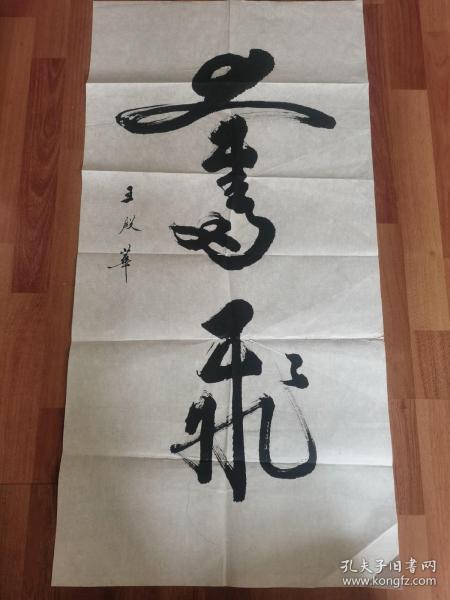 奮飛
王殿華
孔夫子旧书网
www.kongfz.com